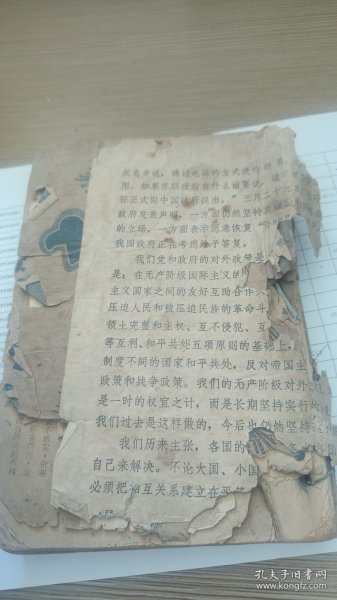 关系来说，通过电话的方式进行联系
用。如果苏联政府有什么话要说，请
径正式向中国政府提出。”三月二十九
政府发表声明，一方面仍然坚持
的立场，一方面表示愿意恢复
我国政府正在考虑给予答复。
我们党和政府的对外政策是
是：在无产阶级国际主义的
主义国家之间的友好互助合作
压迫人民和被压迫民族的革命斗
领土完整和主权、互不侵犯、互
等互利、和平共处五项原则的基础上，
制度不同的国家和平共处，反对帝国主
政策和战争政策。我们的无产阶级对外
是一时的权宜之计，而是长期坚持实行的
我们过去是这样做的，今后也仍然坚持这
我们历来主张，各国的
自己来解决。不论大国、小国
必须把相互关系建立在平等
孔夫子旧书网
www.kongfz.com